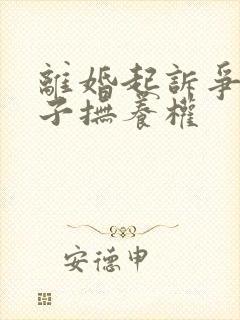 離婚起訴爭
子撫養權
安德申